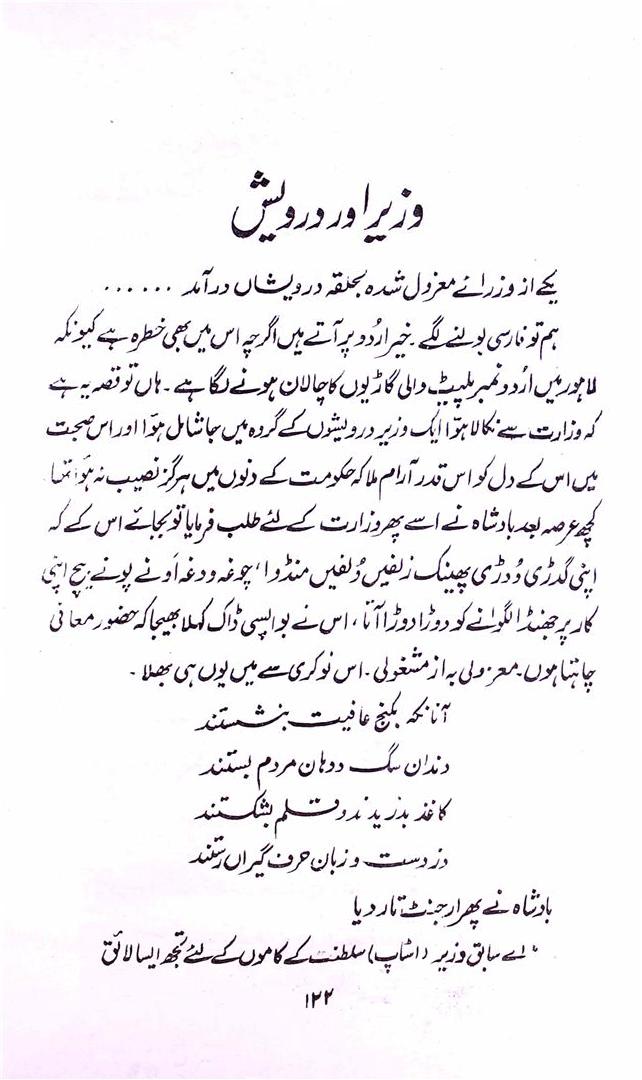 وزیر اور درویش
یکے از وزرائے معزول شدہ بحلقہ درویشاں درآمد ......
ہم تو فارسی بولنے لگے ۔ خیر اردو پر آتے ہیں اگرچہ اس میں بھی خطرہ ہے کیونکہ
لاہور میں اردو نمبر پلیٹ والی گاڑیوں کا چالان ہونے لگا ہے ۔ ہاں تو قصہ یہ ہے
کہ وزارت سے نکالا ہوا ایک وزیر درویشوں کے گروہ میں جا شامل ہوا اور اس صحبت
میں اس کے دل کو اس قدر آرام ملا کہ حکومت کے دنوں میں ہرگز نصیب نہ ہوا تھا
کچھ عرصہ بعد بادشاہ نے اسے پھر وزارت کے لئے طلب فرمایا تو بجائے اس کے کہ
اپنی گدڑی وُدڑی پھینک زلفیں وُلفیں منڈوا ، چوغہ ودغہ اونے پونے بیچ اپنی
کار پر جھنڈا لگوانے کو دوڑا دوڑا آتا ، اس نے بواپسی ڈاک کہلا بھیجا کہ حضور معافی
چاہتا ہوں ۔ معزولی بہ از مشغولی ۔ اس نوکری سے میں یوں ہی بھلا ۔
آنانکہ بکنج عافیت بنشستند
دندان سگ و دہان مردم بستند
کاغذ بدریدند و قلم بشکستند
وز دست و زبان حرف گیراں رستند
بادشاہ نے پھر ارجنٹ تار دیا
" اے سابق وزیر (اسٹاپ) سلطنت کے کاموں کے لئے تجھ ایسا لائق
۱۲۲